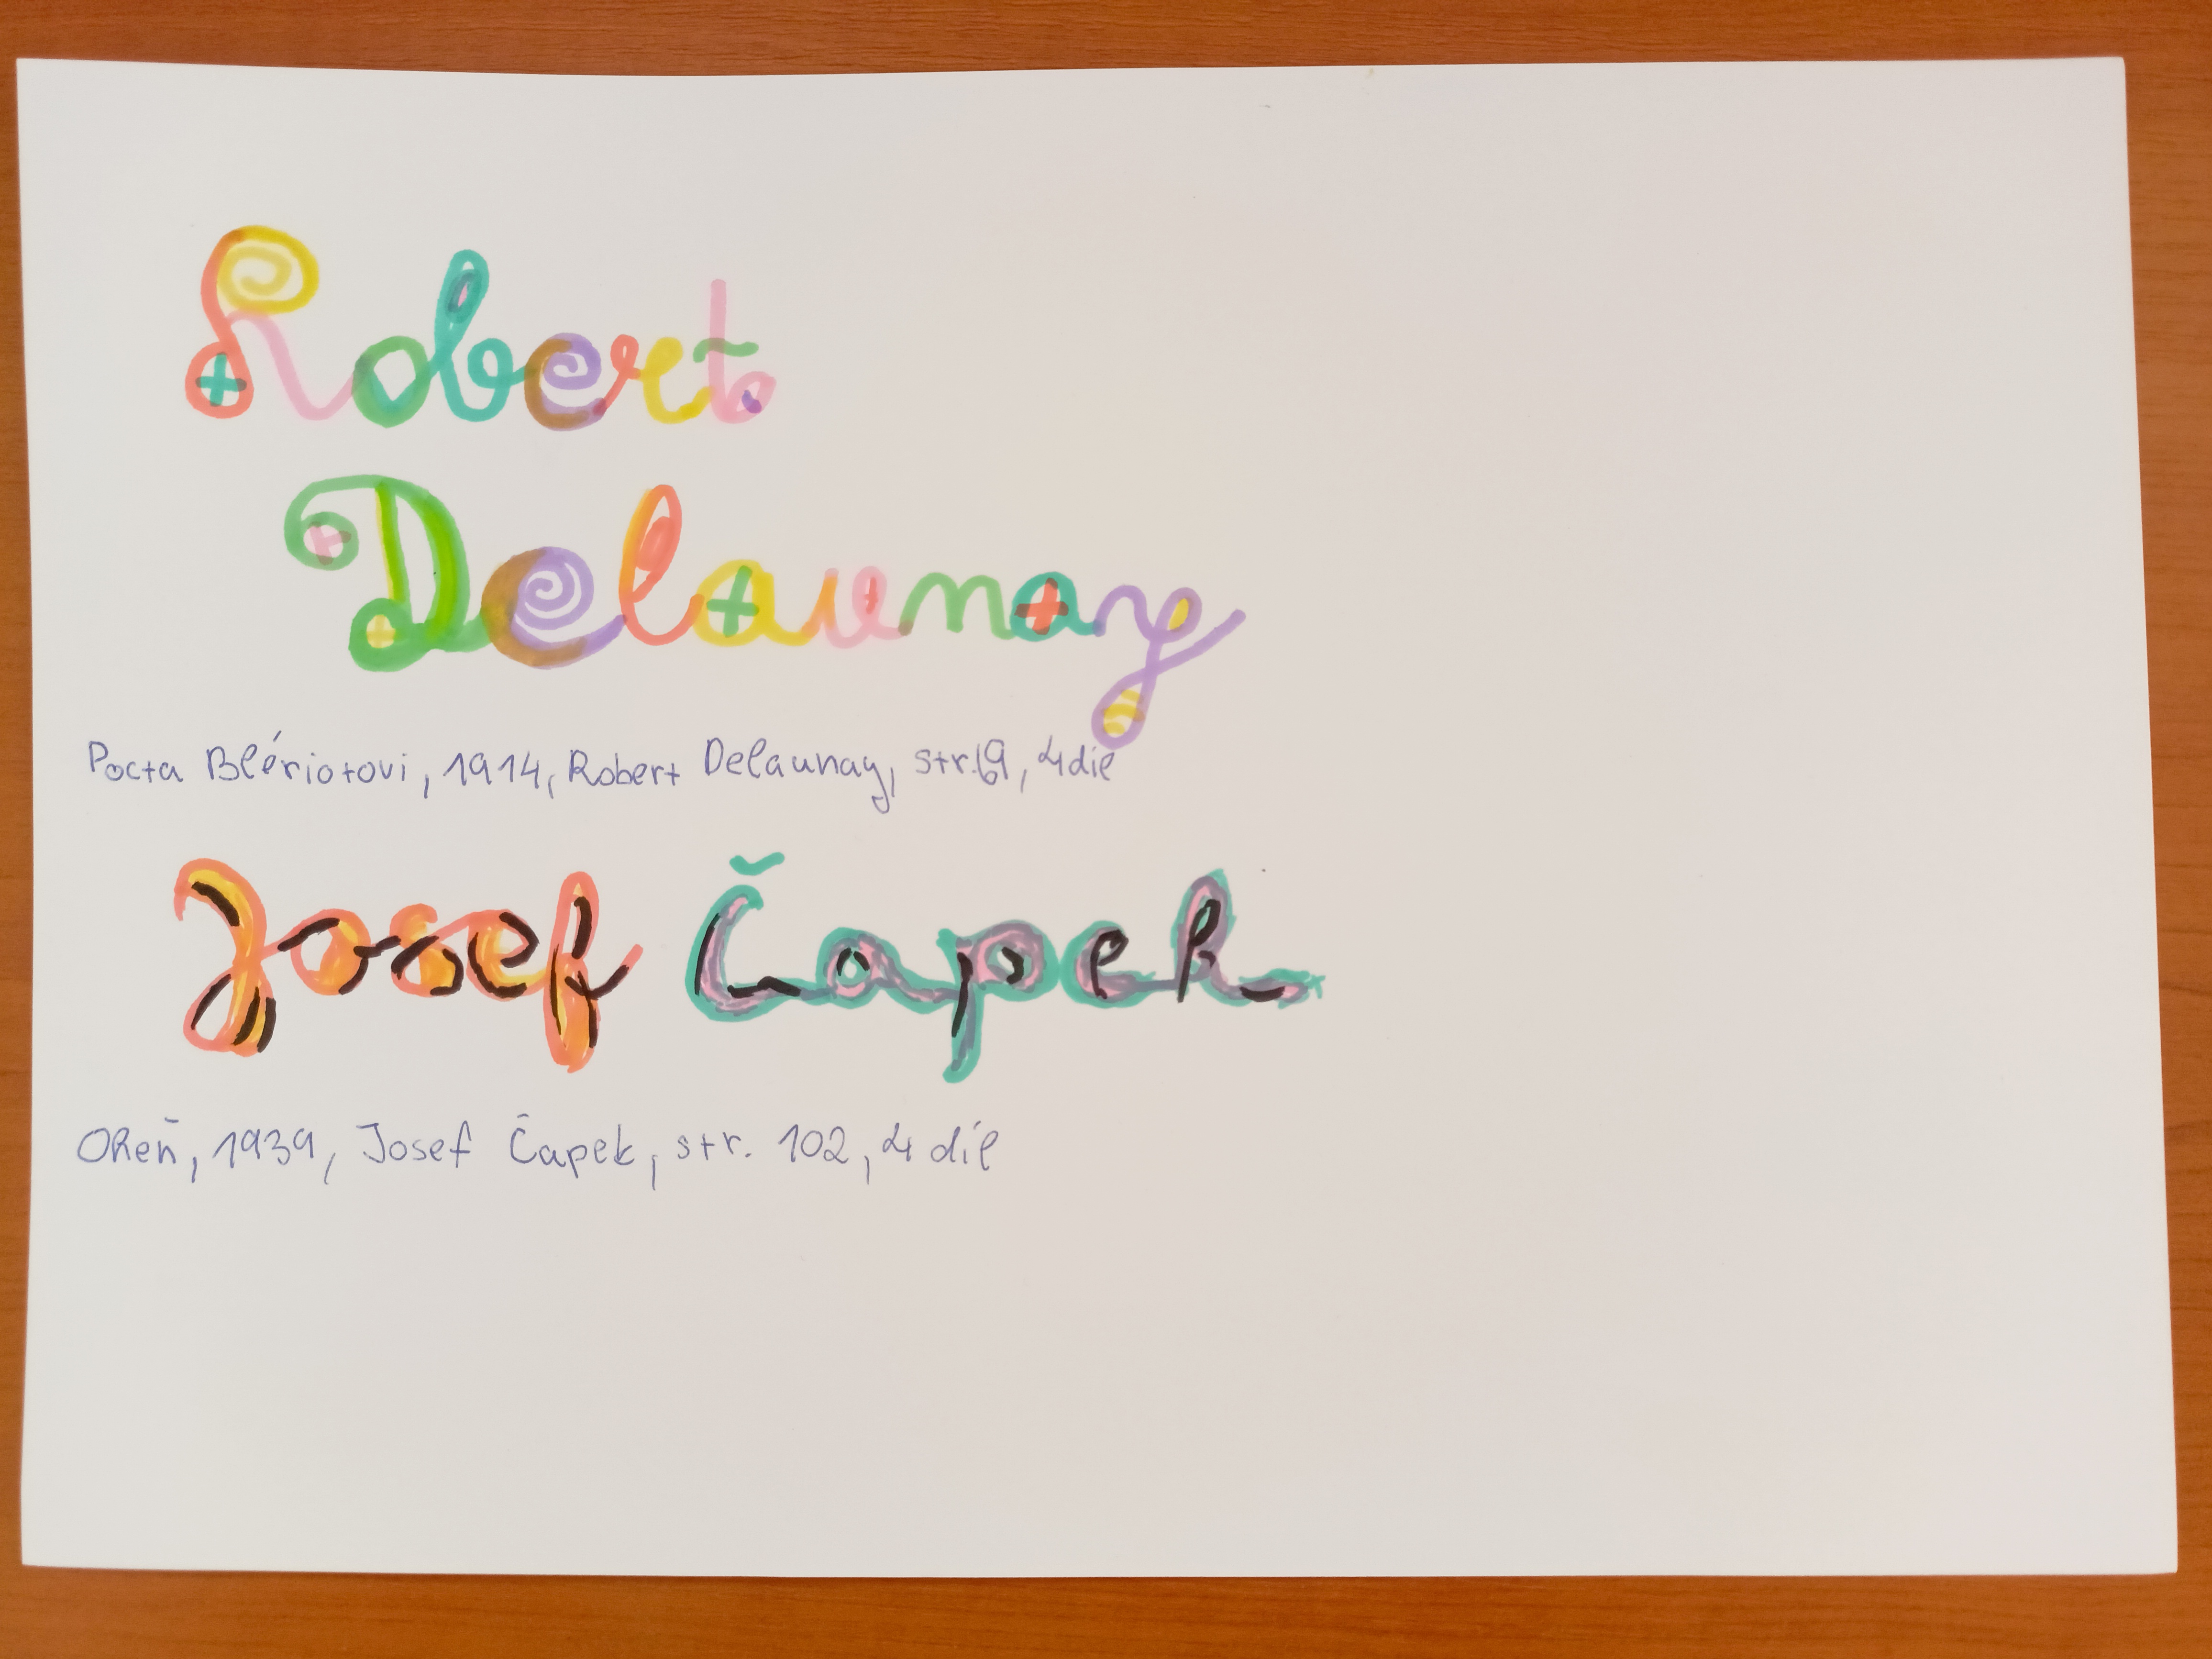 Robert
Delaunay
Pocta Blériotovi, 1914, Robert Delaunay, str. 69, 4 díl
Josef Čapek
Oheň, 1939, Josef Čapek, str. 102, 4 díl